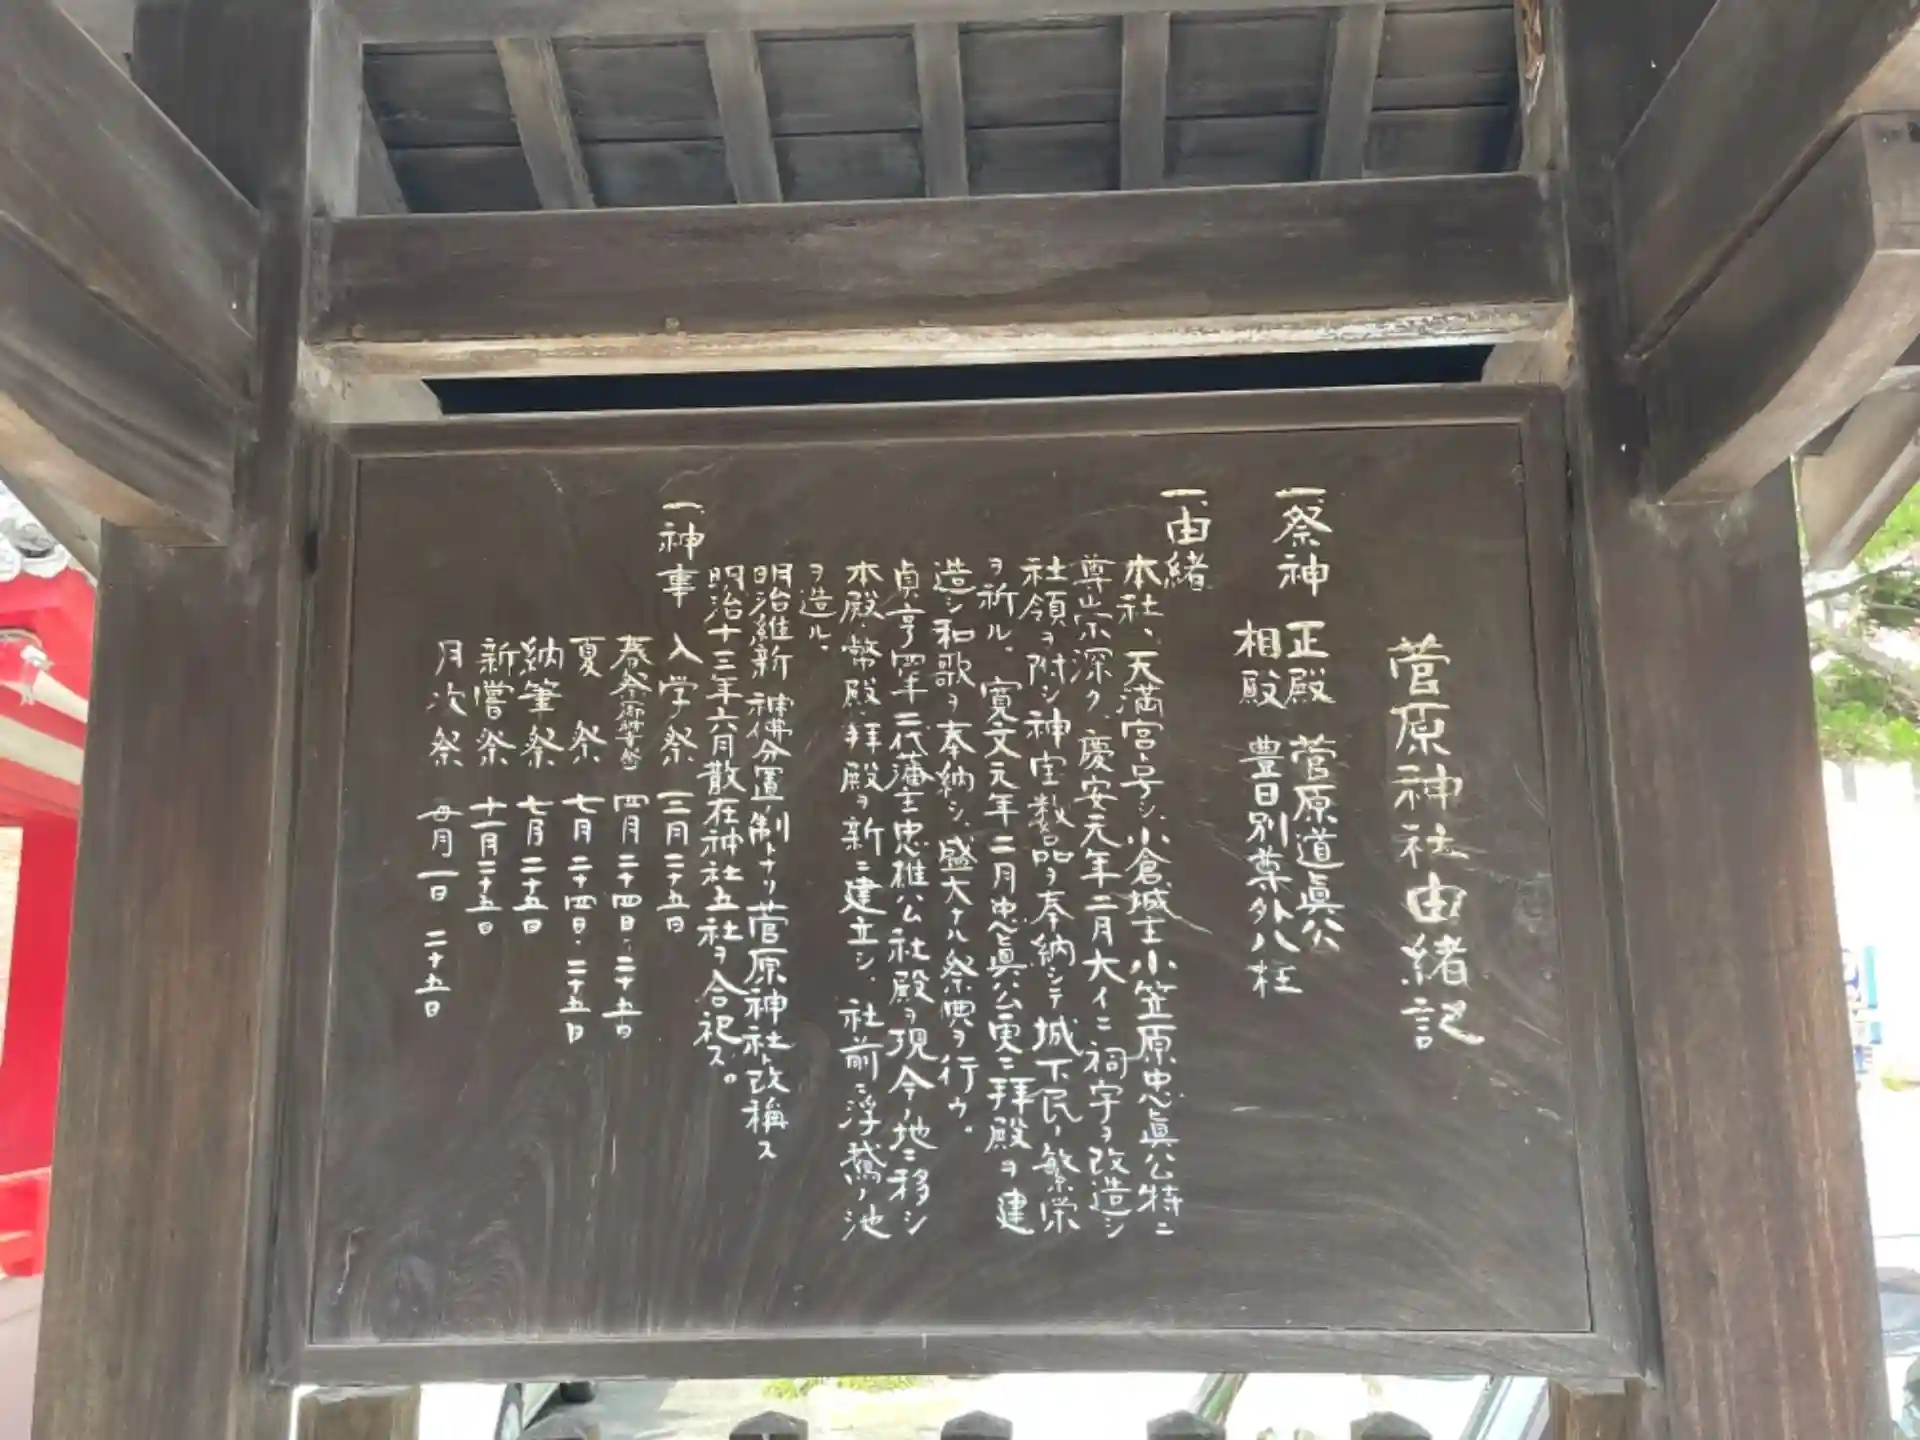 菅原神社由緒記
一、祭神 正殿 菅原道眞公
相殿 豊日別尊外八柱
一、由緒
本社ハ天満宮ト号シ、小倉城主小笠原忠眞公特ニ
尊崇深ク、慶安元年二月大イニ祠宇ヲ改造シ
社領ヲ附シ神宝数品ヲ奉納シテ城下民ノ繁栄
ヲ祈ル。寛文元年二月忠眞公更ニ拝殿ヲ建
造シ和歌ヲ奉納シ、盛大ナル祭典ヲ行ウ。
貞享四年二代藩主忠雄公社殿ヲ現今ノ地ニ移シ
本殿、幣殿、拝殿ヲ新ニ建立シ、社前ニ浮鷺ノ池
ヲ造ル。
明治維新神佛分置ノ制トナリ菅原神社ト改稱ス
明治十三年六月散在神社五社ヲ合祀ス。
一、神事 入学祭 三月二十五日
春祭 四月二十四日・二十五日
夏祭 七月二十四日・二十五日
納筆祭 七月二十五日
新嘗祭 十一月二十五日
月次祭 毎月一日・二十五日